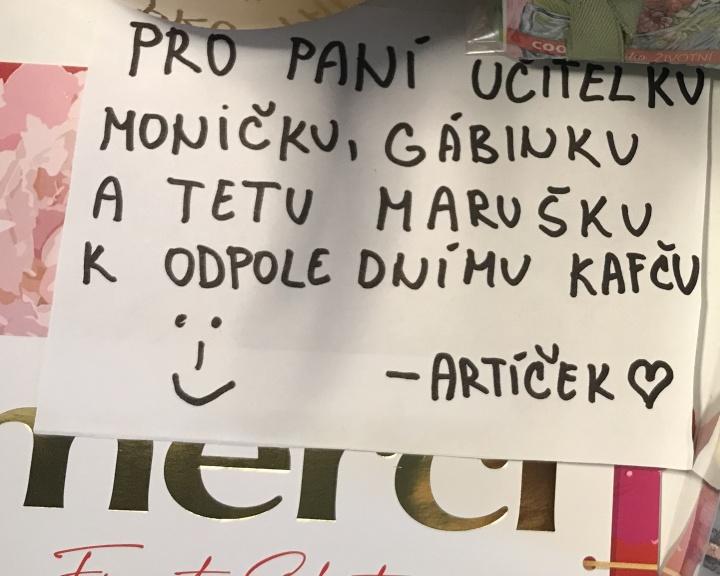 PRO PANÍ UČITELKU
MONIČKU, GÁBINKU
A TETU MARUŠKU
K ODPOLEDNÍMU KAFČU
–ARTÍČEK ♡
merci
COO
ŽIVOTNÍ